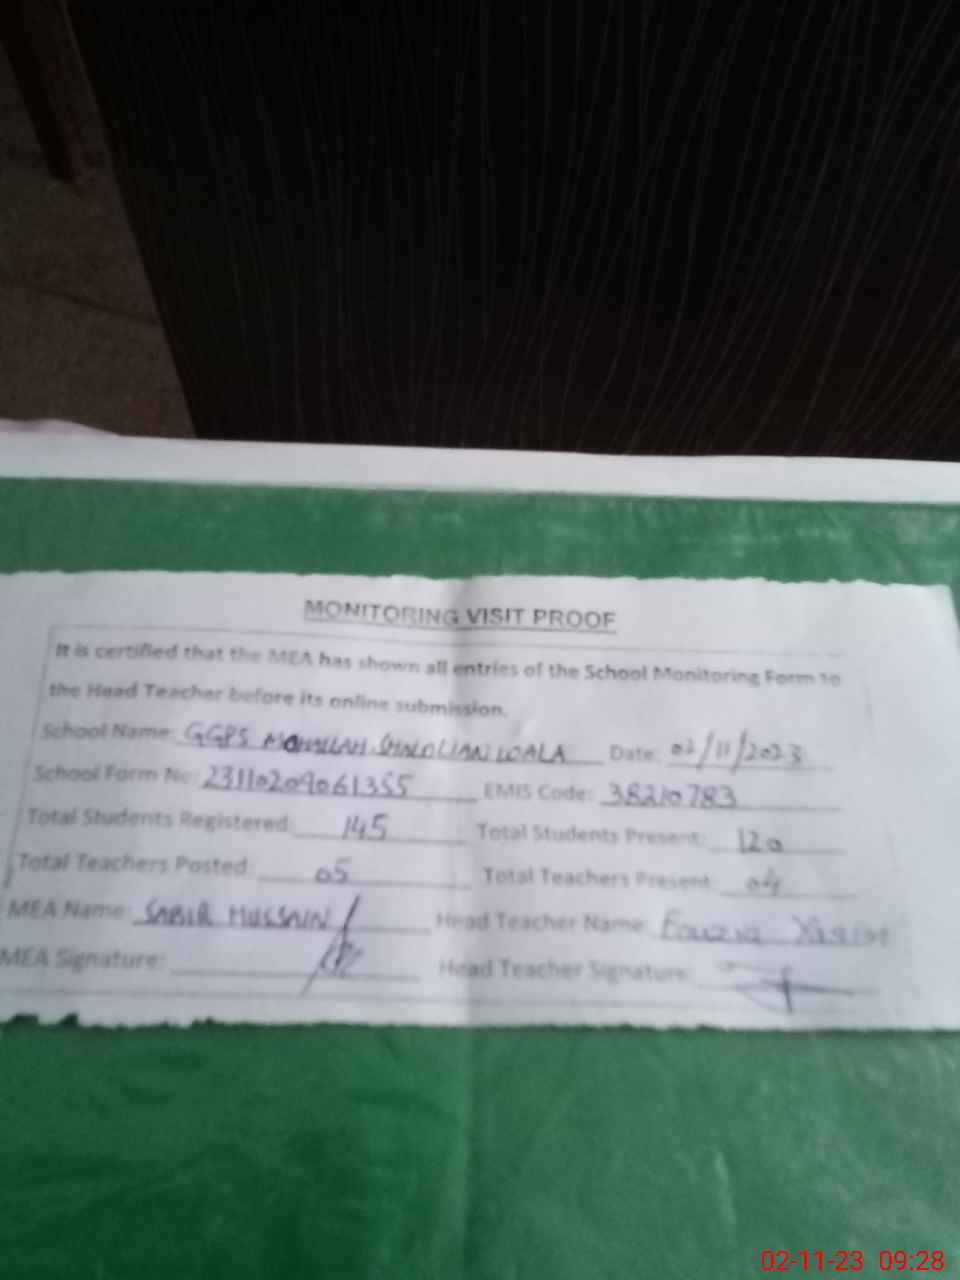 MONITORING VISIT PROOF
It is certified that the MEA has shown all entries of the School Monitoring Form to
the Head Teacher before its online submission.
School Name: GGPS WALA Date: 02/11/2023
School Form No: 23110209061355 EMIS Code: 38210783
Total Students Registered: 145 Total Students Present: 120
Total Teachers Posted: 05 Total Teachers Present: 04
MEA Name: SABIR HUSSAIN Head Teacher Name: Fouzia
MEA Signature: Head Teacher Signature:
02-11-23 09:28